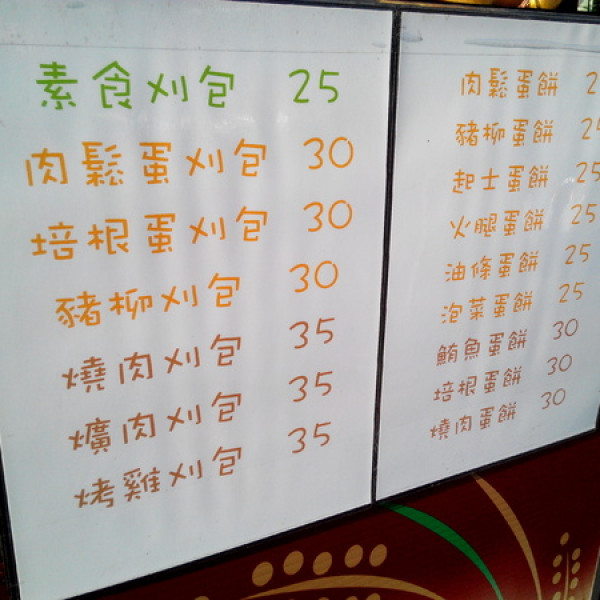 素食刈包 25
肉鬆蛋刈包 30
培根蛋刈包 30
豬柳刈包 30
燒肉刈包 35
爌肉刈包 35
烤雞刈包 35
肉鬆蛋餅 2
豬柳蛋餅 25
起士蛋餅 25
火腿蛋餅 25
油條蛋餅 25
泡菜蛋餅 25
鮪魚蛋餅 30
培根蛋餅 30
燒肉蛋餅 30